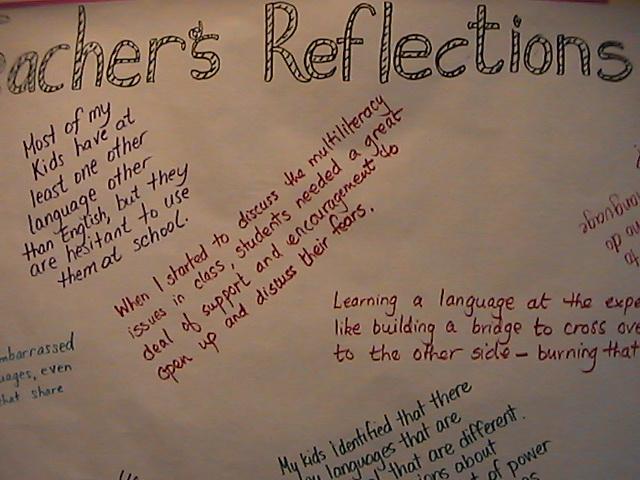 eacher's Reflections
Most of my
Kids have at
least one other
language other
than English, but they
are hesitant to use
them at school.
When I started to discuss the multiliteracy
issues in class, students needed a great
deal of support and encouragement to
open up and discuss their fears.
language
no do
to
Learning a language at the expe
like building a bridge to cross ove
to the other side – burning that
mbarrassed
uages, even
that share
My kids identified that there
languages that are
that are different.
ions about
of power